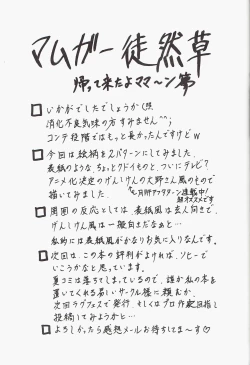 マムガー徒然草
帰って来たよママ〜ン篇
□いかがでしたでしょうか(照
消化不良気味の方すみません^^;
コンテ段階ではもっと長かったんですけどw
□今回は絵柄を2パターンにしてみました。
表紙のような、ちょっとクドイものと、ついにテレビ?
アニメ化決定のげんしけんの大野さん風のもので
描いてみました。
超オススメです
□周囲の反応としては、表紙風は玄人向きで、
げんしけん風は一般白だなぁと…
私的には表紙風がかなりお気に入りなんです。
□次回は、この本の評判がよければ、ソヒーで
いこうかなと思っています。
夏コミは落ちてしまっているので、誰か私の本を
置いてくれる易しいサークル様に頼むか、
次回ラグフェスで発行、もしくはプロ作家目指し
投稿してみようかと…
□よろしかったら感想メールお待ちしてま〜す♡